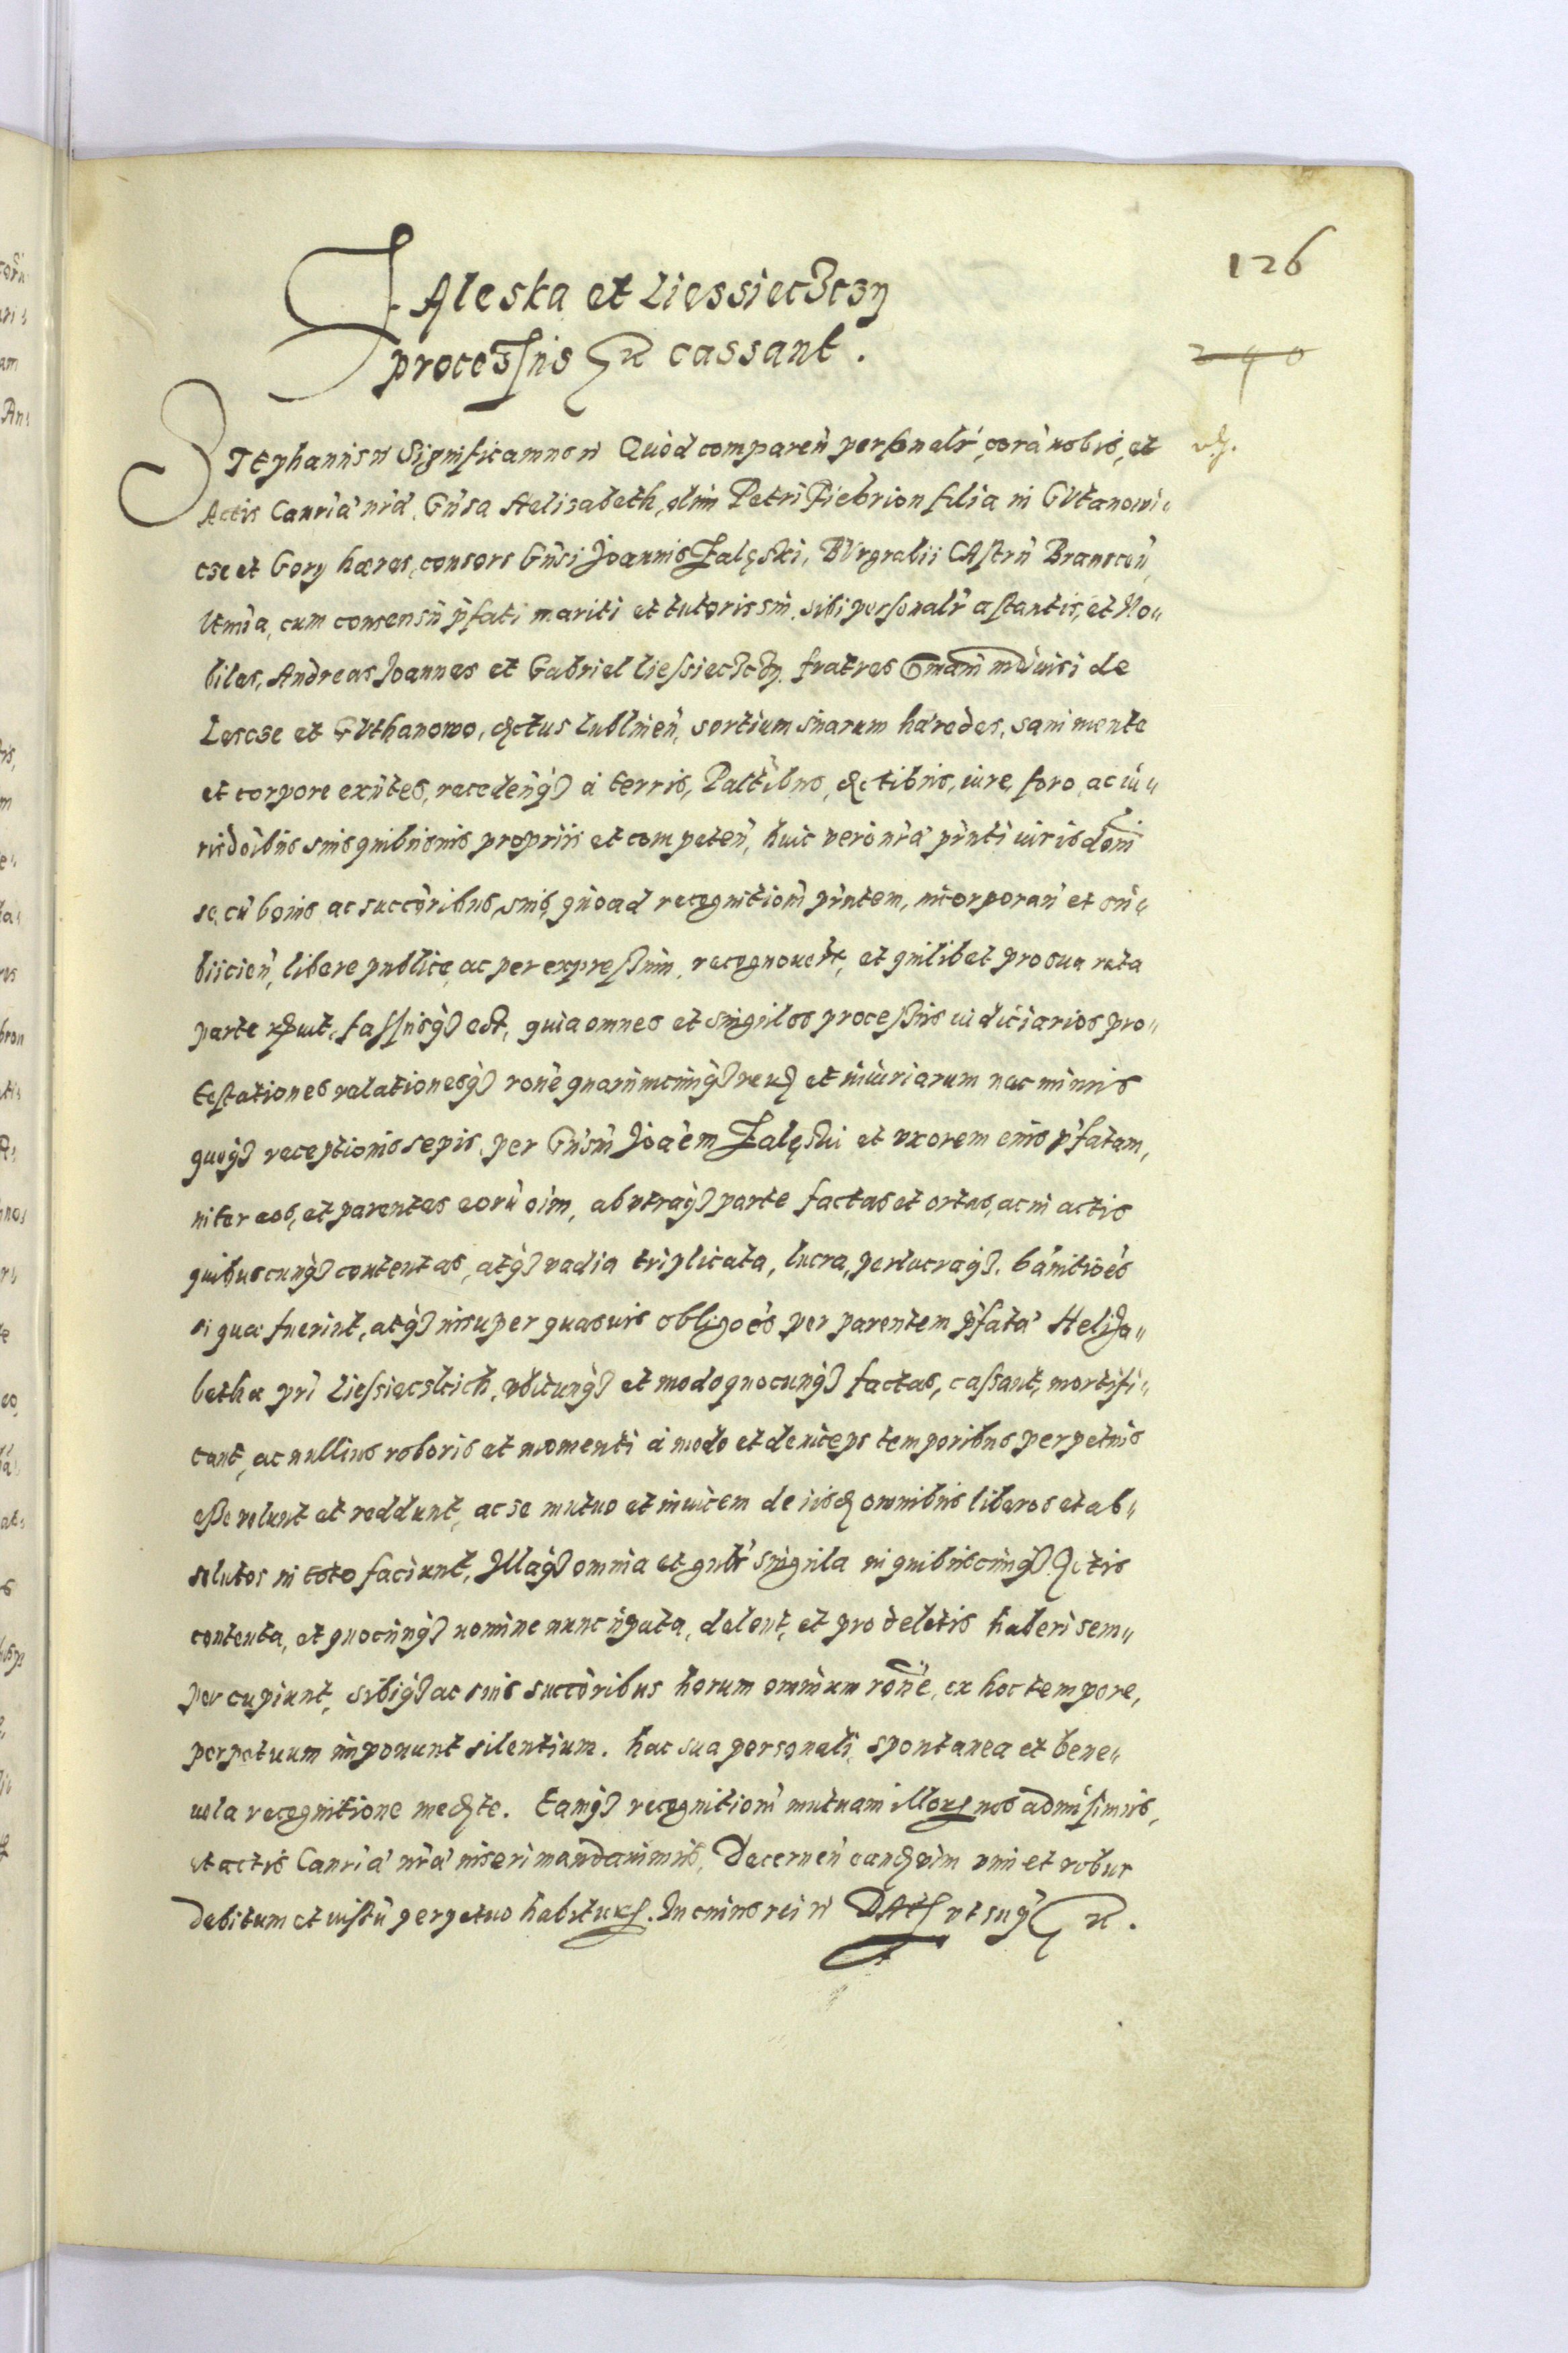 126
Zaleska et Liessieczczy
processus etc cassant.
240
Stephanus etc Significamus etc Quod comparen̄ personalr̄ corā nobis, et
Actis Canriā nrā Gn̄sa Helisabeth, olim Petri Piebrion filia in Gutanowi„
cse et Gory hæres, consors Gn̄si Joannis Zalęski, Burgrabii Castrn̄ Branscen̄,
cum consensu p̄fati mariti et tutoris sui, sibi personalr̄ astantis, et No„
biles, Andreas Joannes et Gabriel Liessieczczy fratres Germani indivisi de
Lescse et Guthanowo, dictus Lublinen̄, sortium suarum hæredes, sani mente
et corpore exn̄tes, recedenq₃ à terris, Paltibus, dctibus, iure, foro, ac iu„
risdōibus suis quibusvis propriis et competen̄, huic vero nrā prn̄ti iurisdōni
se cū bonis ac succōribus suis quoad recognitionē prn̄tem, incorporan̄ et su„
biicien̄, libere publice, ac per expressum, recognovert, et quilibet pro sua rata
parte fassusq₃ est, quia omnes et singulos processus iudiciarios pro„
testationes relationesq₃ rōne quarumcunq₃ rerum et iniuriarum nec minus
quoq₃ receptionis sepis, per Gn̄sm̄ Joāem Zalęski et uxorem eius p̄fatam,
inter eos, et parentes eorū oim, ab utraq₃ parte factas et ortas, ac in actis
quibuscunq₃ contentas, atq₃ vadia triplicata, lucra, perlucraq₃, bānitiōes
si quæ fuerint, atq₃ insuper quasvis obligōes per parentem p̄fatæ Heliza„
bethæ prī Liessiecskich, ubicunq₃ et modo quocunq₃ factas, cassant, mortifi„
cant, ac nullius roboris et momenti à modo et deinceps temporibus perpetuis
esse volunt et reddunt, ac se mutuo et invicem de iisd omnibus liberos et ab„
solutos in toto faciunt, Illaq₃ omnia et gnlr̄ singula in quibuscunq₃ Actis
contenta, et quocunq₃ nomine nuncupata, delent, et pro deletis haberi sem„
per cupiunt, sibiq₃ ac suis succōribus horum omnium rōne, ex hoc tempore,
perpetuum imponunt silentium. hac sua personali, spontanea et bene„
vola recognitione medte. Eamq₃ recognitionē mutuam illorum nos admisimus,
et actis Canriā nrā inseri mandavimus, Decernen̄ eand vim et robur
debitum et iustū perpetuo habituram. In cuius rei etc Dat ut sup etc.